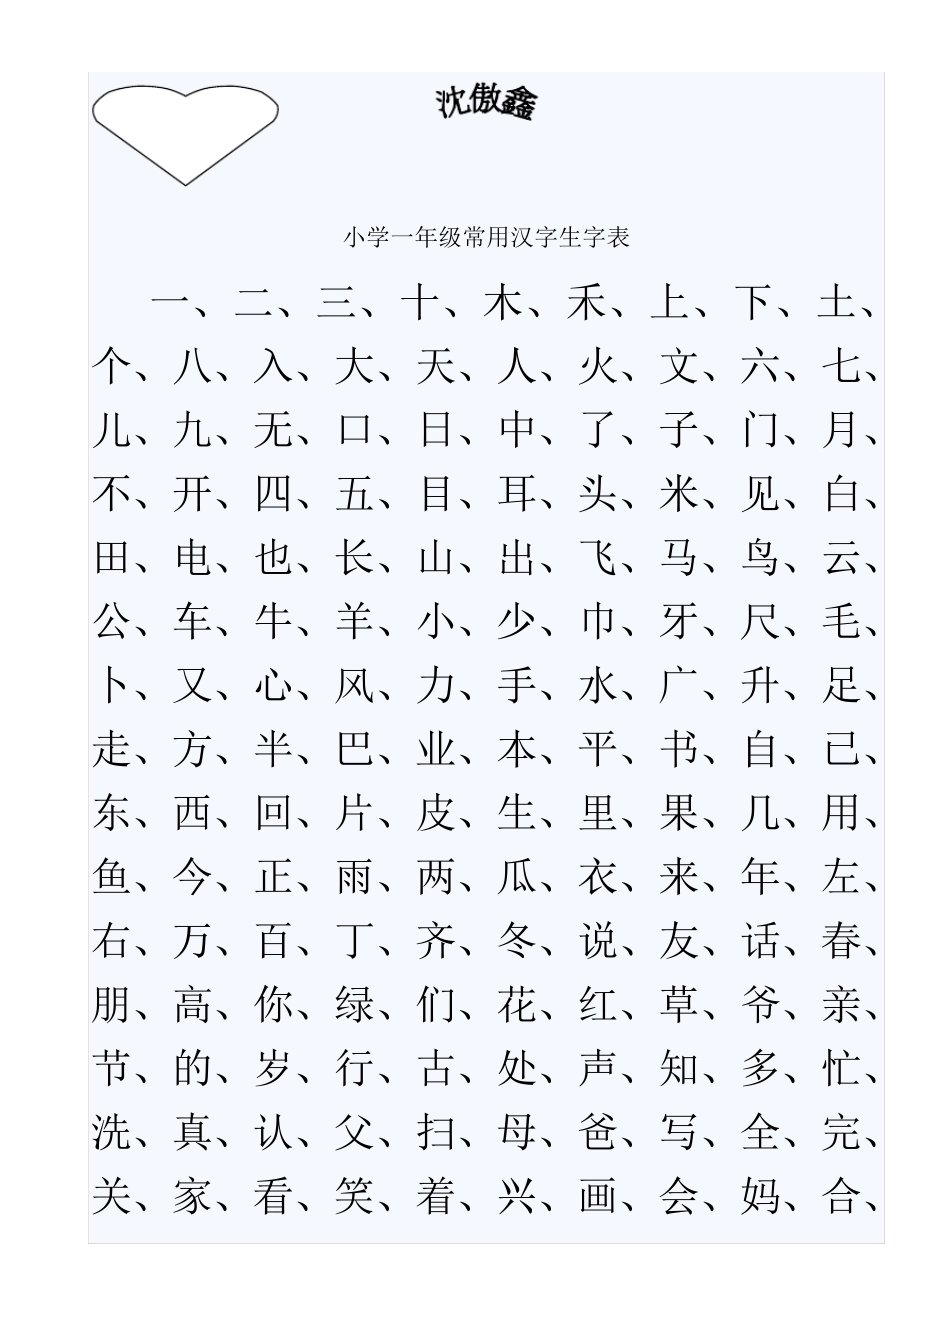 沈傲鑫
小学一年级常用汉字生字表
一、二、三、十、木、禾、上、下、土、
个、八、入、大、天、人、火、文、六、七、
儿、九、无、口、日、中、了、子、门、月、
不、开、四、五、目、耳、头、米、见、白、
田、电、也、长、山、出、飞、马、鸟、云、
公、车、牛、羊、小、少、巾、牙、尺、毛、
卜、又、心、风、力、手、水、广、升、足、
走、方、半、巴、业、本、平、书、自、已、
东、西、回、片、皮、生、里、果、几、用、
鱼、今、正、雨、两、瓜、衣、来、年、左、
右、万、百、丁、齐、冬、说、友、话、春、
朋、高、你、绿、们、花、红、草、爷、亲、
节、的、岁、行、古、处、声、知、多、忙、
洗、真、认、父、扫、母、爸、写、全、完、
关、家、看、笑、着、兴、画、会、妈、合、